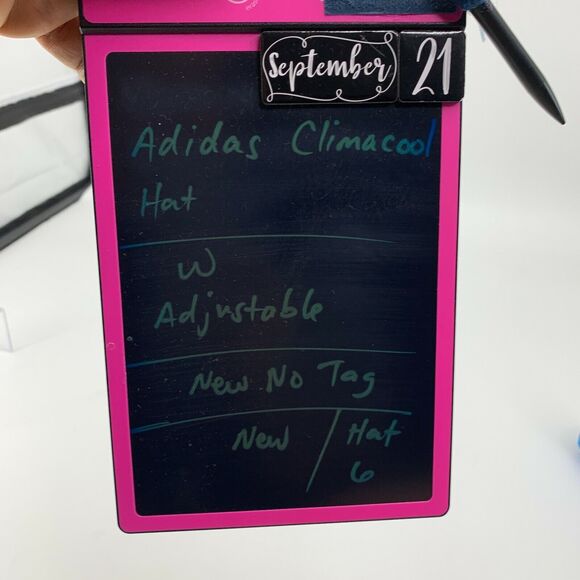 September 21
Adidas Climacool
Hat
W
Adjustable
New No Tag
New / Hat
6